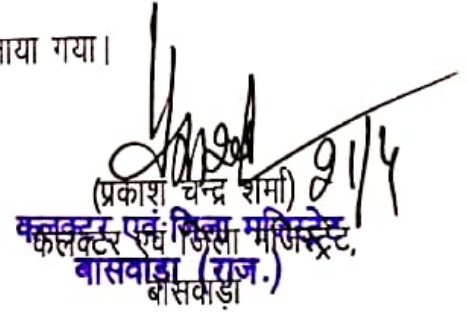 ाया गया।
21/4
(प्रकाश चन्द्र शर्मा)
कलक्टर एवं जिला मजिस्ट्रेट,
कलक्टर एवं जिला मजिस्ट्रेट,
बांसवाड़ा (राज.)
बांसवाड़ा